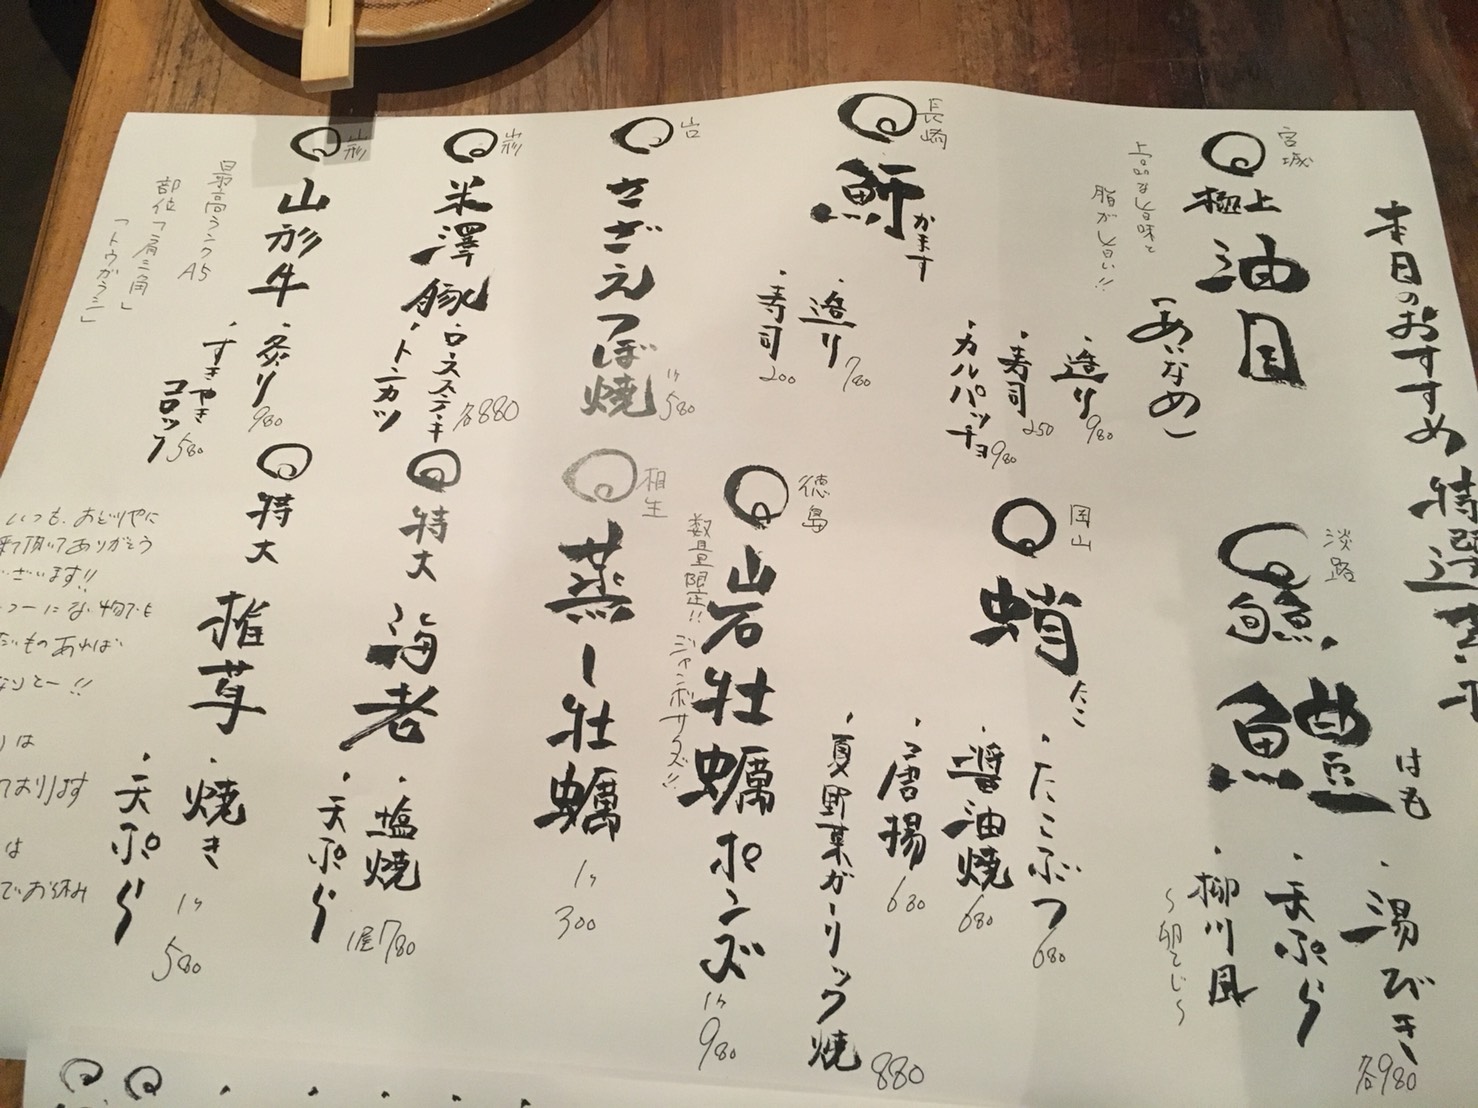 本日のおすすめ
宮城
極上
油目
(あいなめ)
上品な旨味と
脂がしい!!
・造り 980
・寿司 250
・カルパッチョ 980
長崎
魳
かます
・造り 780
・寿司 200
さざえつぼ焼
1ヶ 580
山形
米澤豚
・ロースステーキ
・トンカツ
各880
山形
山形牛
最高ランク A5
部位「肩三角」
「トウガラシ」
・炙り 980
・すきやきコロッケ 580
淡路
鱧
はも
・湯びき
・天ぷら
・柳川風
〜卵とじ〜
各980
岡山
蛸
たこ
・たこぶつ 680
・醤油焼 680
・唐揚 680
・夏野菜ガーリック焼 880
徳島
岩牡蠣ポンズ
数量限定!!ジャンボサイズ!!
1ヶ 980
相生
蒸し牡蠣
1ヶ 300
特大
海老
・塩焼
・天ぷら
1尾 780
特大
椎茸
・焼き
・天ぷら
1ヶ 580
いつも、おどりやに
来て頂いてありがとう
ございます!!